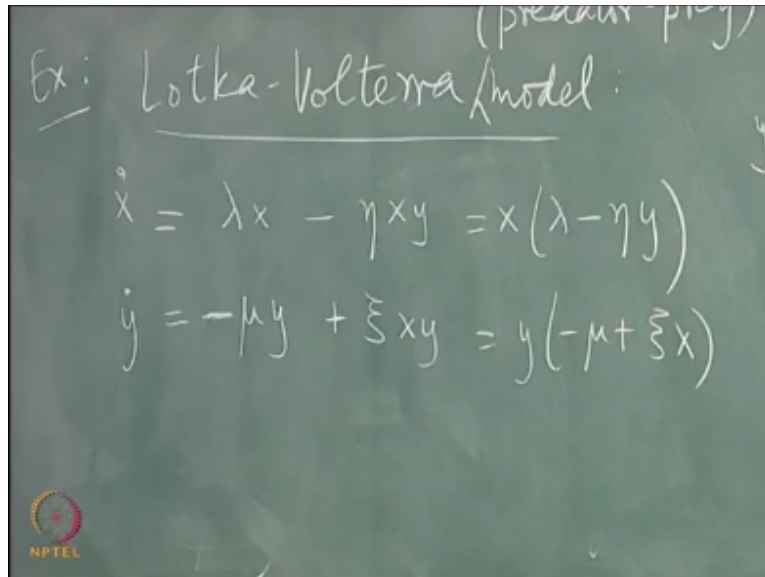 (predator-prey)
Ex: Lotka-Volterra model:
ẋ = λx - ηxy = x(λ-ηy)
ẏ = -μy + ξxy = y(-μ+ξx)
NPTEL